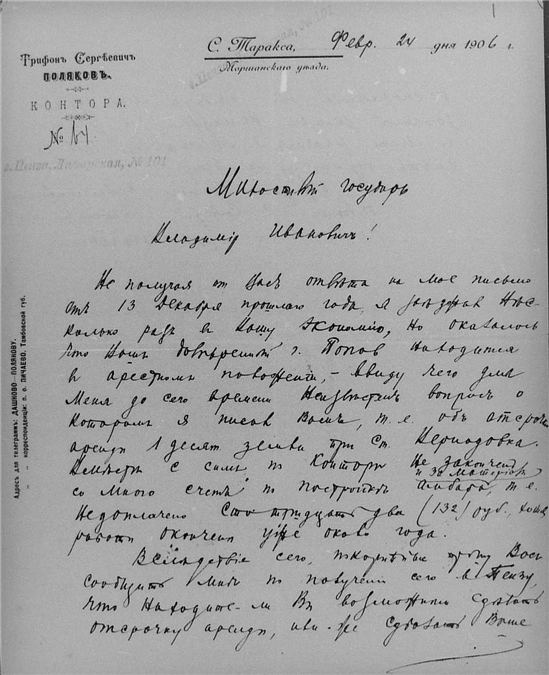 Трифонъ Сергѣевичъ
ПОЛЯКОВЪ.
КОНТОРА.
№ 64
г. Пенза, № 101
С. Таракса, Февр. 24 дня 1906 г.
Моршанскаго уѣзда.
Милостивый государь
Владиміръ Ивановичъ!
Не получая отъ Васъ отвѣта на мое письмо
отъ 13 Декабря прошлаго года, я заѣзжалъ нѣс-
колько разъ в Вашу Экономію, но оказалось
что Вашъ довѣренный г. Поповъ находится
в арестномъ положеніи, – ввиду чего для
меня до сего времени неизвѣстенъ вопросъ о
которомъ я писалъ Вамъ, т. е. объ отсрочкѣ
аренды 1 десят земли при ст. Вернадовка.
Вмѣстѣ с симъ, по Конторѣ не законченъ
и за матеріалъ
со мною счетъ по постройкѣ амбара т. е.
недоплачено Сто тридцать два (132) руб., хотя
работы окончены уже около года.
Вслѣдствіе сего, покорнѣйше прошу Васъ
сообщить мнѣ по полученіи сего в Пензу,
что находите-ли Вы возможнымъ сдѣлать
отсрочку аренды, или-же сдѣлать Ваше
Адресъ для телеграммъ: ДАШКОВО—ПОЛЯКОВУ.
— корреспонденціи: п. о. ПИЧАЕВО, Тамбовской губ.